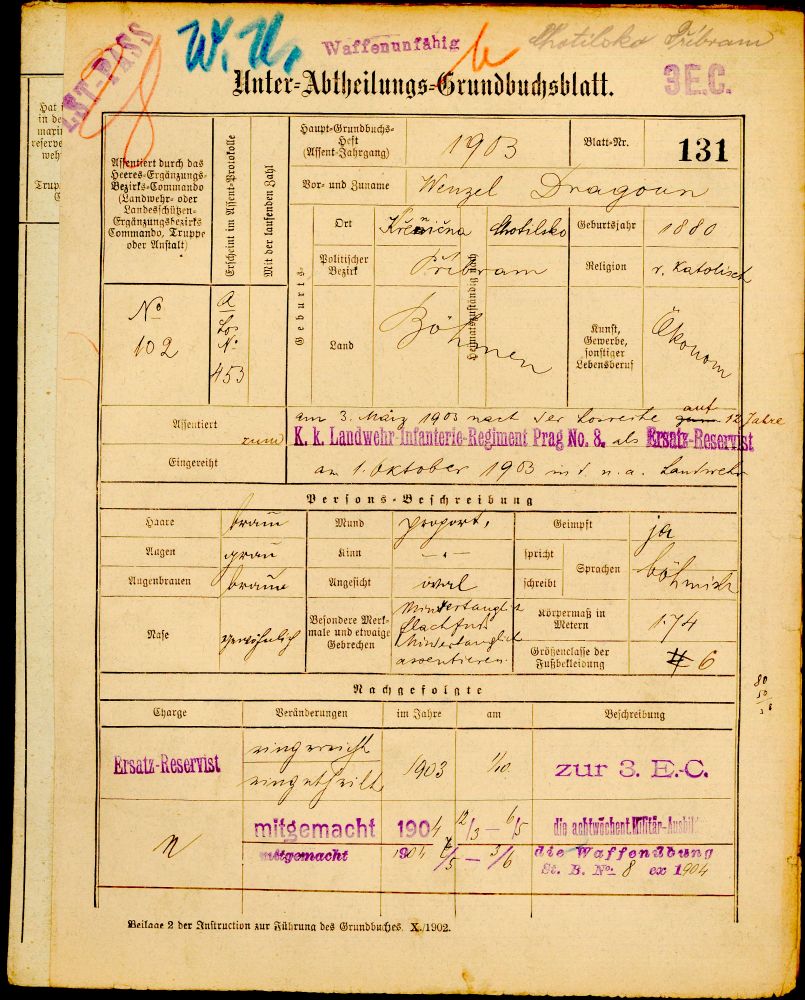 LST-PASS
W. U.
Waffenunfähig
Chotilsko Přibram
Unter-Abtheilungs-Grundbuchsblatt.
3E.C.
Hat
in de
mari
reserve
weh
Trup
Assentiert durch das
Heeres-Ergänzungs-
Bezirks-Commando
(Landwehr- oder
Landesschützen-
Ergänzungsbezirks
Commando, Truppe
oder Anstalt)
Erscheint im Assent-Protokolle
Mit der laufenden Zahl
Haupt-Grundbuchs-
Heft
(Assent-Jahrgang)
1903
Blatt-Nr.
131
Vor- und Zuname
Wenzel Dragoun
Geburts-
Ort
Chotilsko
Geburtsjahr
1880
Politischer
Bezirk
Přibram
Religion
r. katolisch
Land
Böhmen
Kunst,
Gewerbe,
sonstiger
Lebensberuf
Ökonom
No
102
a
Los
No
453
Assentiert
am 3. März 1903 nach der Losreihe auf 12 Jahre
zum K. k. Landwehr-Infanterie-Regiment Prag No. 8. als Ersatz-Reservist
Eingereiht
am 1. Oktober 1903 in d. n. a. Landwehr
Persons-Beschreibung
Haare
braun
Mund
proport.
Geimpft
ja
Augen
grau
Kinn
- " -
spricht
schreibt
Sprachen
böhmisch
Augenbrauen
braun
Angesicht
oval
Nase
gewöhnlich
Besondere Merk-
male und etwaige
Gebrechen
Mindertauglich
Mindertauglich
assentieren.
Körpermaß in
Metern
1.74
Größenclasse der
Fußbekleidung
6
Nachgefolgte
Charge
Veränderungen
im Jahre
am
Beschreibung
Ersatz-Reservist
eingereicht
eingetheilt
1903
1/10.
zur 3. E.-C.
mitgemacht
1904
12/3 — 6/5
die achtwöchent. Militär-Ausbil
mitgemacht
1904
7/5 — 3/6
die Waffenübung
St. B. No. 8 ex 1904
Beilage 2 der Instruction zur Führung des Grundbuches. X./1902.